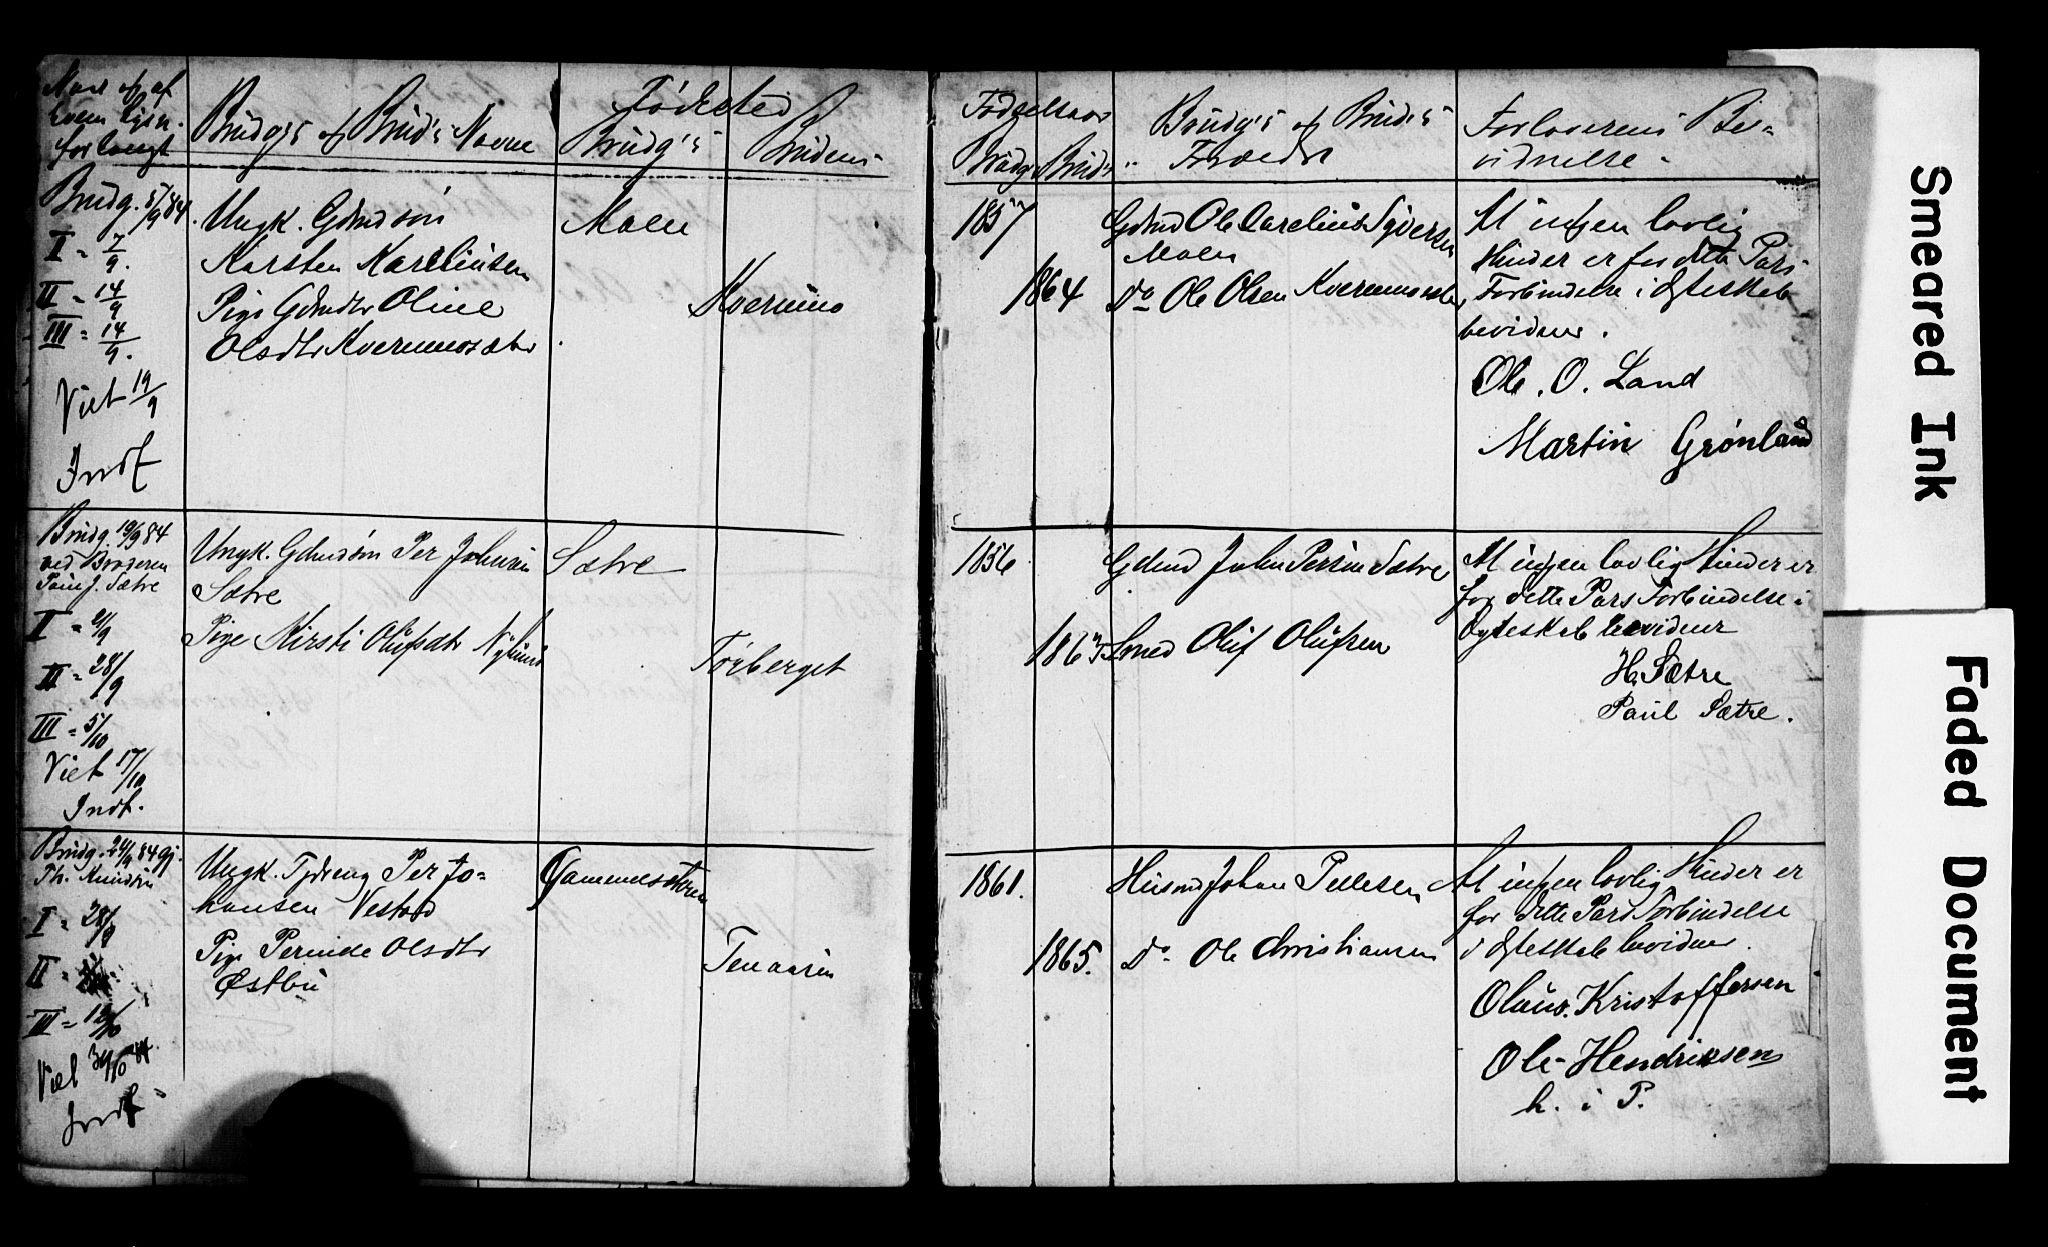 Naar og af
hvem Lysn.
forlangt
Brudgs og Brud's Navne
Fødested
Brudg's
Brudens
Fødselsaar
Brudg's
Brud's
Brudg's og Brud's
Forældre
Forloverens Be-
vidnelse.
Brudg. 5/9 84.
I = 7/9.
II = 14/9
III = 14/9.
Viet 19/9
Indf
Ungk. Gdmdsøn
Karsten Kareliusen
Pige Gdmdtr Oline
Olsdtr Kvernmosætr.
Moen
Kvernmo
1857
1864
Gdmd Ole Carelius Syversen
Moen
Do Ole Olsen Kvernmosætr
At ingen lovlig
Hinder er for dette Pars
Forbindelse i Ægteskab
bevidner.
Ole. O. Land
Martin Grønland
Brudg. 19/9 84
ved Broderen
Paul J. Sætre
I = 21/9
II = 28/9
III = 5/10
Viet 17/10
Indf.
Ungk. Gdmdsøn Per Johnsen
Sætre
Pige Kirsti Olufsdtr Nylund
Sætre
Tørberget
1856
1863
Gdmd John Persen Sætre
Smed Oluf Olufsen
At ingen lovlig Hinder er
for dette Pars Forbindelse i
Ægteskab bevidner
H. Sætre
Paul Sætre.
Brudg. 24/9 84 gj.
Th. Knudsen
I = 28/9
II =
III = 12/10
Viet 30/10 84
Indf
Ungk. Tjdreng Per Jo=
hansen Vestad
Pige Pernille Olsdtr
Østby
Gammelsætren
Tenaasen
1861.
1865.
Husmd Johan Pettersen
Do Ole Christiansen
At ingen lovlig Hinder er
for dette Pars Forbindelse
i Ægteskab bevidner.
Olaus. Kristoffersen
Ole Hendriksen
h. i P.
Smeared Ink
Faded Document